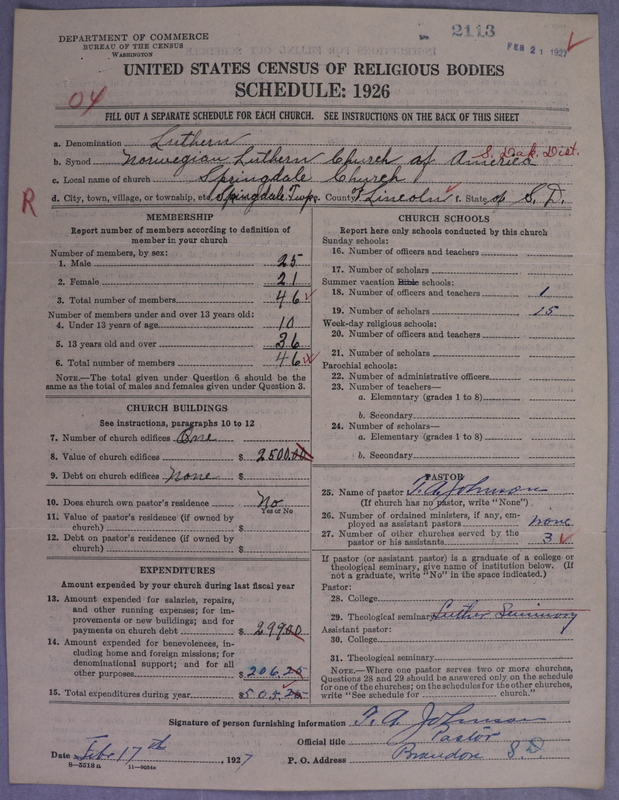 2113
FEB 21 1927
DEPARTMENT OF COMMERCE
BUREAU OF THE CENSUS
WASHINGTON
UNITED STATES CENSUS OF RELIGIOUS BODIES
SCHEDULE: 1926
04
FILL OUT A SEPARATE SCHEDULE FOR EACH CHURCH. SEE INSTRUCTIONS ON THE BACK OF THIS SHEET
a. Denomination Luthern
b. Synod Norwegian Luthern Church of America S. Dak. Dist.
c. Local name of church Springdale Church
R
d. City, town, village, or township, etc. Springdale Twp. e. County Lincoln f. State of S. D.
MEMBERSHIP
Report number of members according to definition of member in your church
Number of members, by sex:
1. Male 25
2. Female 21
3. Total number of members 46
Number of members under and over 13 years old:
4. Under 13 years of age 10
5. 13 years old and over 36
6. Total number of members 46
NOTE.—The total given under Question 6 should be the
same as the total of males and females given under Question 3.
CHURCH BUILDINGS
See instructions, paragraphs 10 to 12
7. Number of church edifices One
8. Value of church edifices $ 2500.00
9. Debt on church edifices None $
10. Does church own pastor's residence No
Yes or No
11. Value of pastor's residence (if owned by
church) $
12. Debt on pastor's residence (if owned by
church) $
EXPENDITURES
Amount expended by your church during last fiscal year
13. Amount expended for salaries, repairs,
and other running expenses; for im-
provements or new buildings; and for
payments on church debt $ 299.00
14. Amount expended for benevolences, in-
cluding home and foreign missions; for
denominational support; and for all
other purposes $ 206.25
15. Total expenditures during year $ 505.25
CHURCH SCHOOLS
Report here only schools conducted by this church
Sunday schools:
16. Number of officers and teachers
17. Number of scholars
Summer vacation Bible schools:
18. Number of officers and teachers 1
19. Number of scholars 15
Week-day religious schools:
20. Number of officers and teachers
21. Number of scholars
Parochial schools:
22. Number of administrative officers
23. Number of teachers—
a. Elementary (grades 1 to 8)
b. Secondary
24. Number of scholars—
a. Elementary (grades 1 to 8)
b. Secondary
PASTOR
25. Name of pastor T. A. Johnson
(If church has no pastor, write "None")
26. Number of ordained ministers, if any, em-
ployed as assistant pastors None
27. Number of other churches served by the
pastor or his assistants 3
If pastor (or assistant pastor) is a graduate of a college or
theological seminary, give name of institution below. (If
not a graduate, write "No" in the space indicated.)
Pastor:
28. College
29. Theological seminary Luther Seminary
Assistant pastor:
30. College
31. Theological seminary
NOTE.—Where one pastor serves two or more churches,
Questions 28 and 29 should be answered only on the schedule
for one of the churches; on the schedules for the other churches,
write "See schedule for church."
Signature of person furnishing information T. A. Johnson
Official title Pastor
Date Feb 17th, 1927 P. O. Address Brandon S. D.
8-5518a 11-9034a